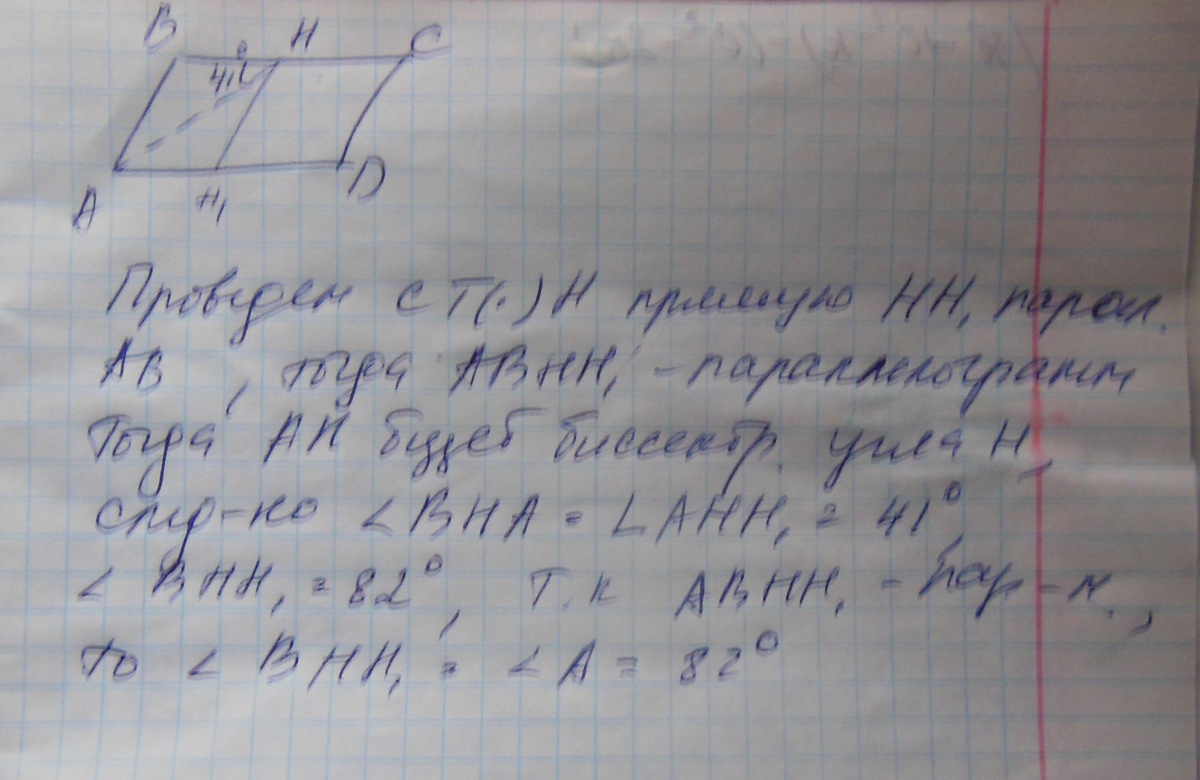 B H C
41°
A H₁ D
Проведем с т(·) H прямую HH₁ парал.
AB, тогда ABHH₁ - параллелограмм
Тогда AH будет биссектр. угла H,
след-но ∠BHA = ∠AHH₁ = 41°,
∠BHH₁ = 82°, т.к ABHH₁ - пар-м.,
то ∠BHH₁ = ∠A = 82°